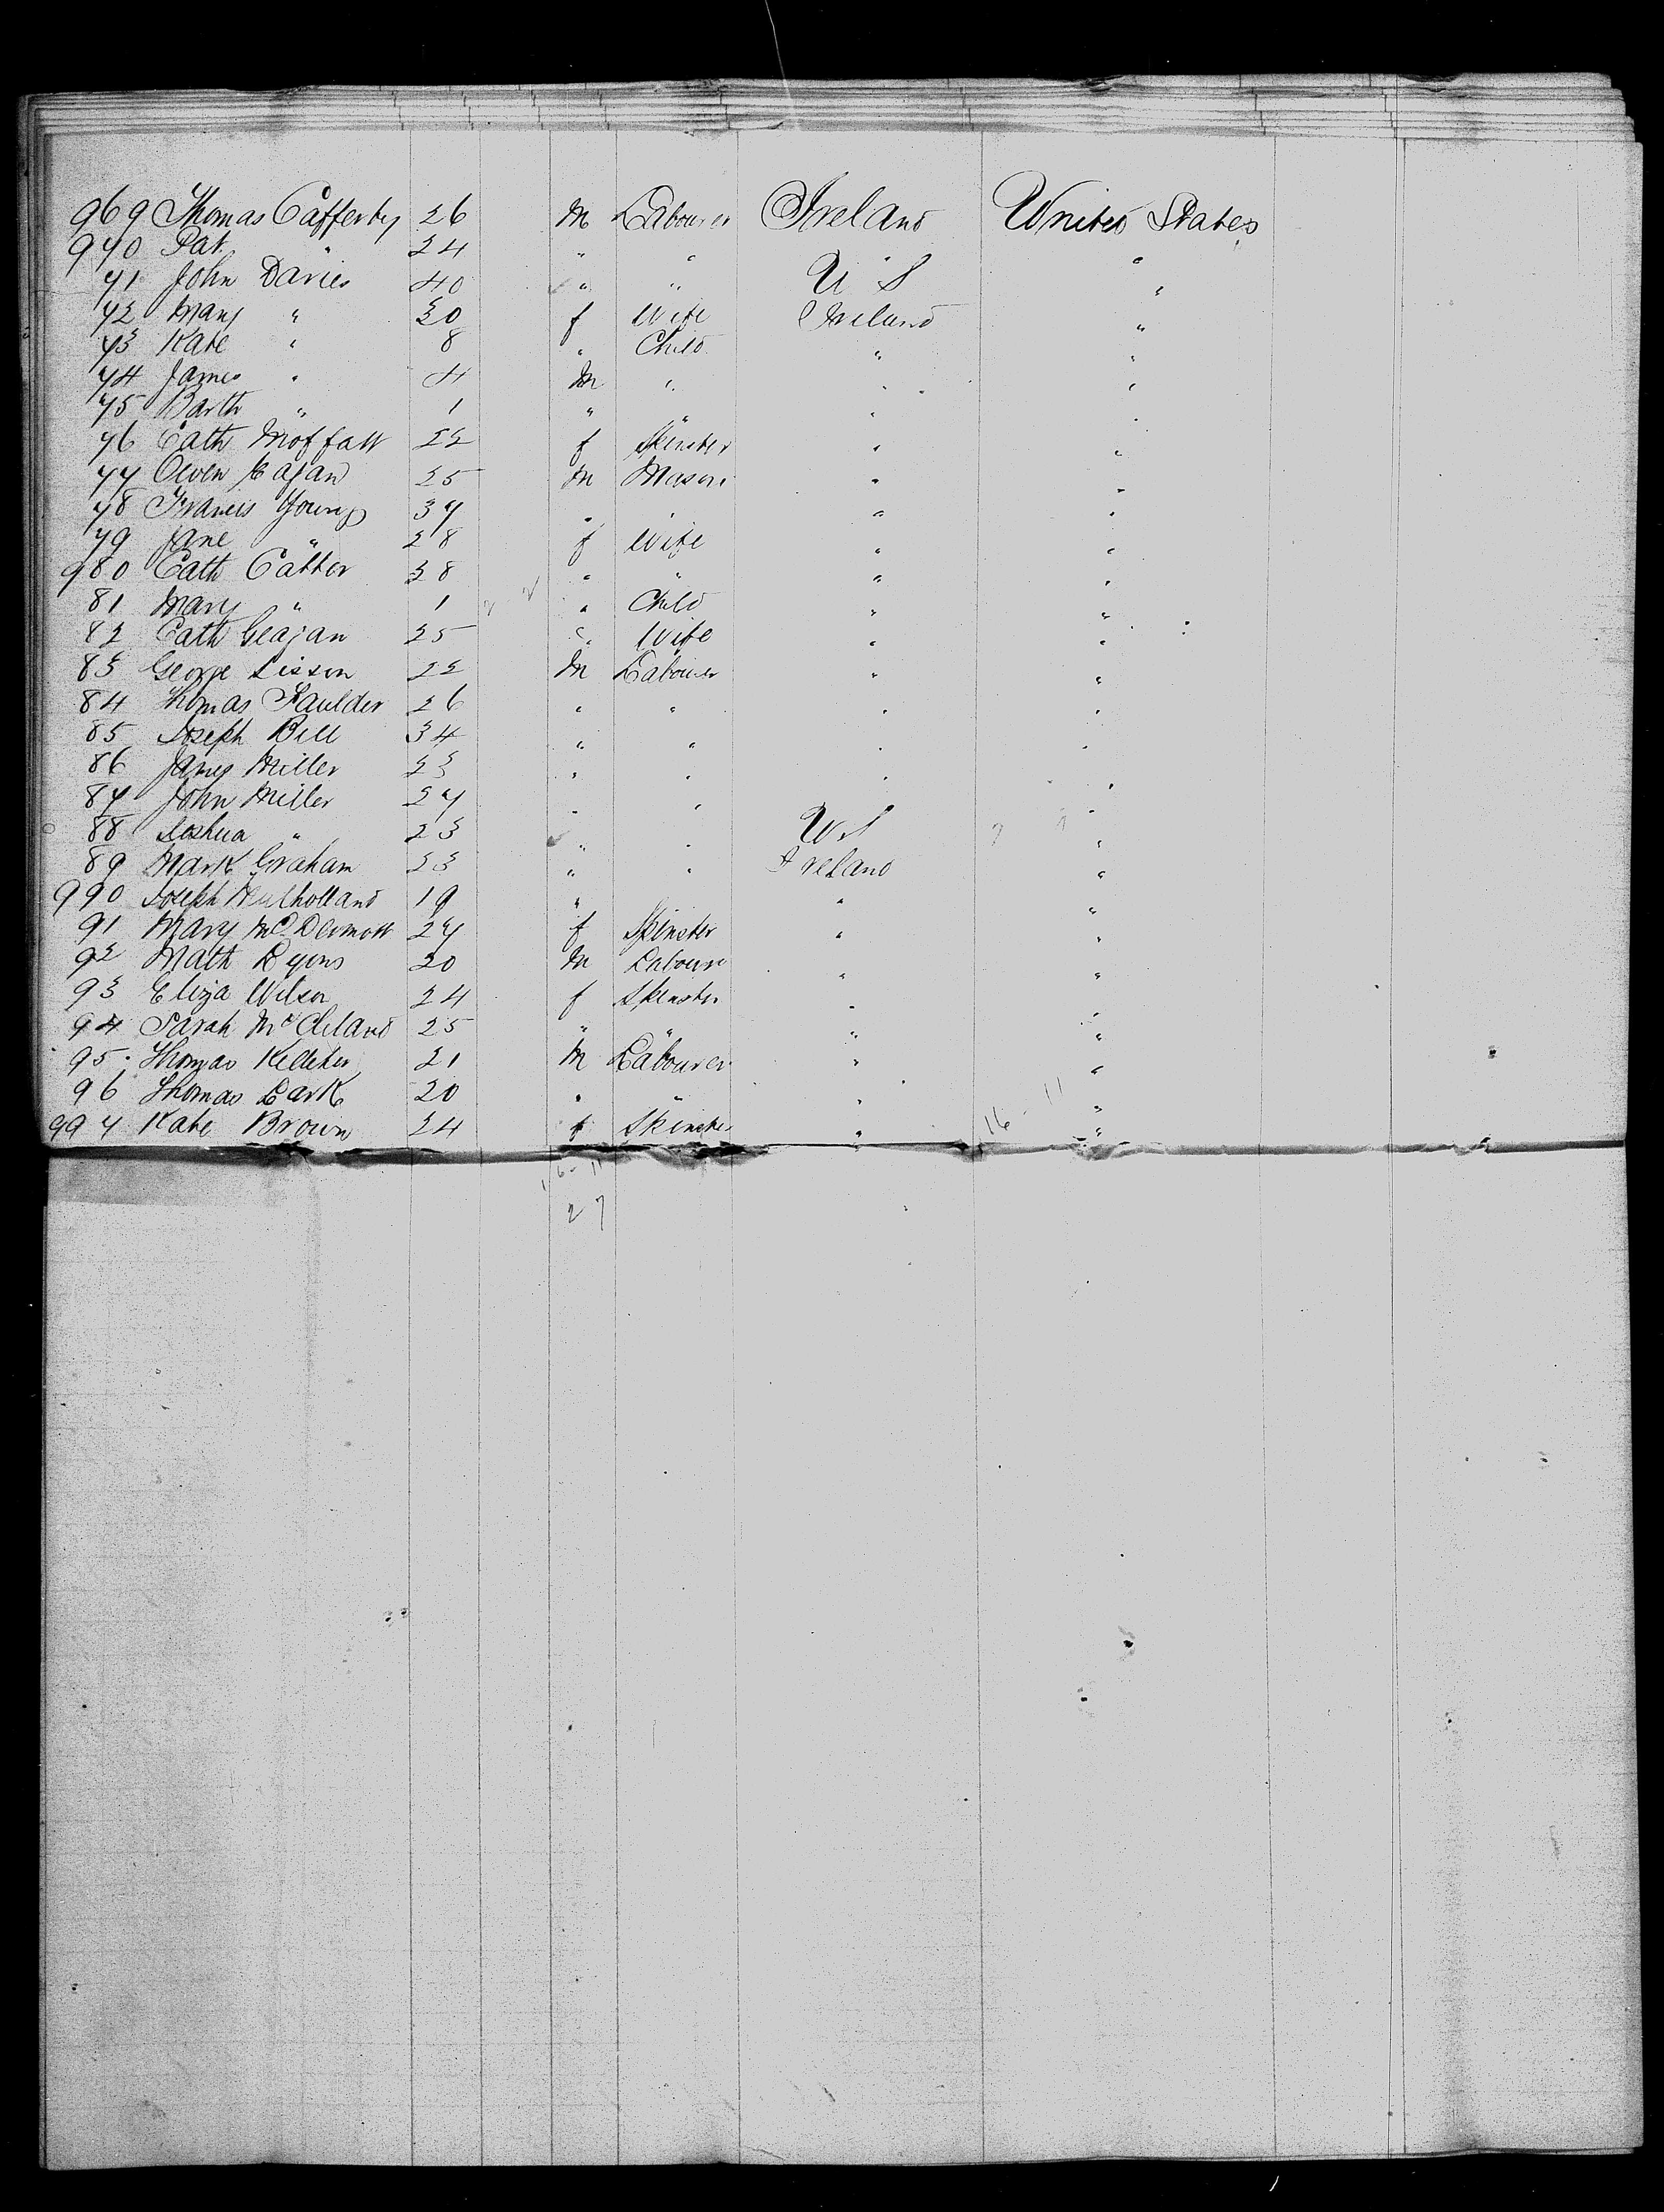 969 Thomas Cafferty 26 M Labourer Ireland United States
970 Pat " 24 " " " "
71 John Davies 40 " " U S "
72 Mary " 30 f Wife Ireland "
73 Kate " 8 " Child " "
74 James " 4 M " " "
75 Barth " 1 " " " "
76 Cath Moffatt 22 f Spinster " "
77 Owen Eagan 25 M Mason " "
78 Francis Young 37 " " " "
79 Jane " 28 f Wife " "
980 Cath 38 " " " "
81 Mary " 1 " Child " "
82 Cath Geajan 25 " Wife " "
83 George Sisson 22 M Labourer " "
84 Thomas Faulder 26 " " " "
85 Joseph Bell 34 " " " "
86 James Miller 23 " " " "
87 John Miller 27 " " " "
88 Joshua " 23 " " U S "
89 Mark Graham 33 " " Ireland "
990 Joseph Mulholland 19 " " "
91 Mary McDermott 27 f Spinster " "
92 Math Lyons 20 M Labourer " "
93 Eliza Wilson 24 f Spinster " "
94 Sarah McCleland 25 " " " "
95 Thomas Kelleher 21 M Labourer " "
96 Thomas Lark 20 " " " "
997 Kate Brown 24 f Spinster " 16 - 11 "
16 - 11
27